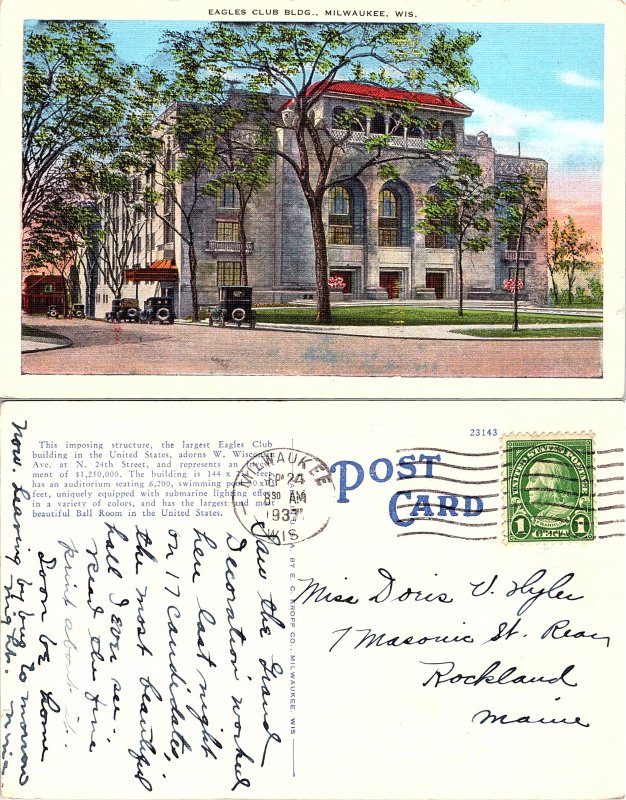 EAGLES CLUB BLDG., MILWAUKEE, WIS.
This imposing structure, the largest Eagles Club
building in the United States, adorns W. Wisconsin
Ave. at N. 24th Street, and represents an
ment of $1,250,000. The building is 144 x
has an auditorium seating 6,200, swimming
feet, uniquely equipped with submarine lighting
in a variety of colors, and has the largest and most
beautiful Ball Room in the United States.
MILWAUKEE
SEP 24
8 30 AM
193
WIS
23143
POST
CARD
UNITED STATES POSTAGE
1 1
BY E. C. KROPP CO., MILWAUKEE, WIS
Saw the Grand
Decoration worked
here last night
on 17 candidates,
the most beautiful
hall I ever see..
Read the fine
print about it.
Soon be home
now. Leaving by bus to morrow
night. Mina.
Miss Doris V. Hyler
7 Masonic St. Rear
Rockland
Maine